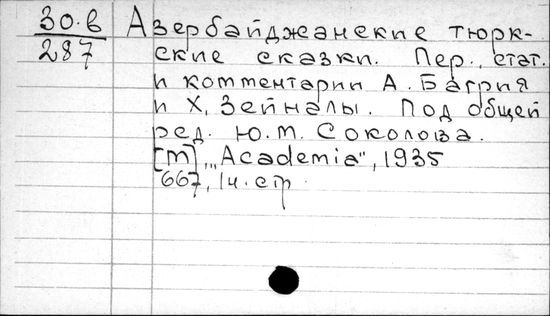 30.в
287
Азербайджанские тюрк-
ские сказки. Пер., стат.
и комментарии А. Багрия
и Х. Зейналы. Под общей
ред. Ю.М. Соколова.
[М], "Academia", 1935
667, 1ч. стр.